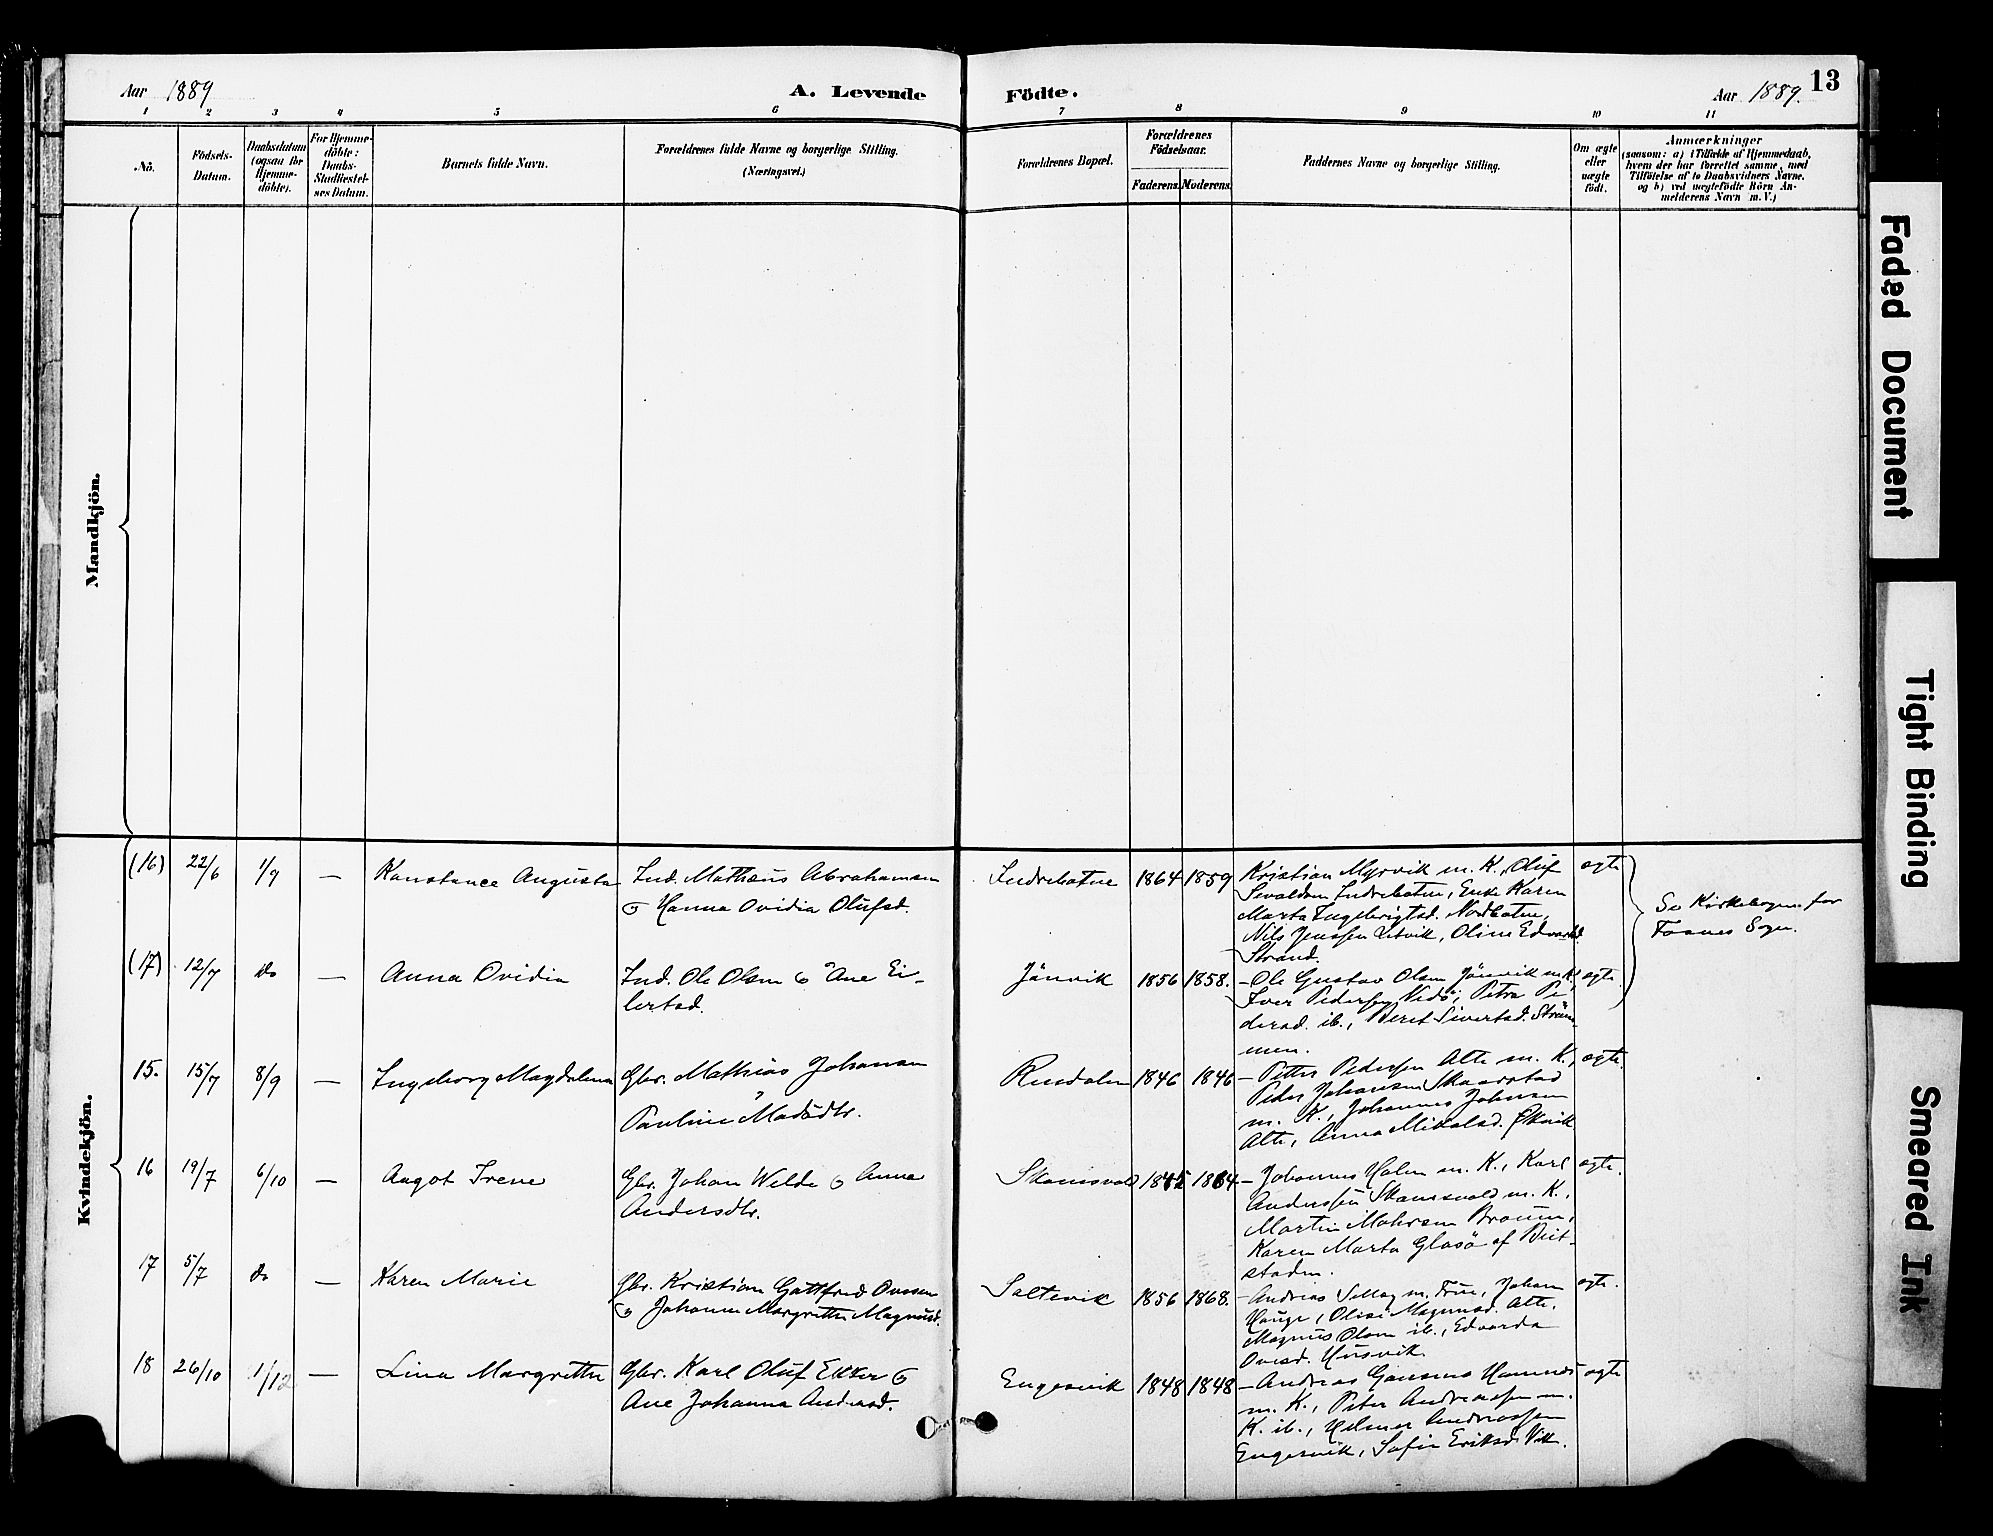 Aar 1889 A. Levende Födte. Aar 1889. 13
1 2 3 4 5 6 7 8 9 10 11
No.
Födsels-Datum.
Daabsdatum
(ogsaa for
Hjemme-
döbte).
For Hjemme-
döbte:
Daabs-
Stadfæstel-
ses Datum.
Barnets fulde Navn.
Forældrenes fulde Navne og borgerlige Stilling.
(Næringsvei.)
Forældrenes Bopæl.
Forældrenes
Födselsaar.
Faderens. Moderens.
Faddernes Navne og borgerlige Stilling.
Om ægte
eller
uægte
födt.
Anmærkninger
(saasom: a) i Tilfælde af Hjemmedaab,
hvem der har forrettet samme, med
Tilföielse af to Daabsvidners Navne.
og b) ved uægtefödte Börn An-
melderens Navn m.V.)
Mandkjön.
Kvindekjön.
(16) 22/6 1/9 — Konstance Augusta
Ind. Mathæus Abrahamsen
& Hanna Ovidia Olufsd.
Indrebotne 1864 1859
Kristian Myrvik m. K., Oluf
Sevaldsen Indrebotne, Enke Karen
Marta Ingebrigtsd. Nordbotne,
Nils Jenssen Utvik, Oline Edvardsd.
Strand.
ægte
Se Kirkebogen for
Fosnes Sogn.
(17) 12/7 do — Anna Ovidia
Ind. Ole Olsen & Ane Ei-
lertsd.
Jönvik 1856 1858.
— Ole Gustav Olsen Jönvik m. K.,
Iver Pedersen Vedö, Petra Pe-
dersd. ib., Beret Sivertsd. Ström-
men.
ægte.
15. 15/7 8/9 — Ingeborg Magdalena
Gbr. Mathias Johansen
Pauline Madsdtr.
Rindalen 1846 1846
— Petter Pedersen Alte m. K.,
Peder Johansen Skaarstad
m. K., Johannes Johnsen
Alte, Anna Mikalsd. Økvik
ægte.
16 19/7 6/10 — Aagot Irene
Gbr. Johan Welde & Anna
Andersdtr.
Skamsvold 1864
— Johannes Holm m. K., Karl
Anderssen Skamsvold m. K.,
Martin Braum,
Karen Marta Glasö af Beit-
staden.
ægte.
17 5/7 do — Karen Marie
Gbr. Kristian Gottfred Ovesen
& Johanna Margrethe Magnusd.
Saltevik 1856 1868.
— Andreas Selläg m. Frue, Johan
Hauge, Olise Magnusd. Alte,
Magnus Olsen ib., Edvarda
Ovesd. Husvik.
ægte.
18 26/10 1/12 — Lina Margrethe
Gbr. Karl Oluf Ekker &
Ane Johanna Andersd.
Engesvik 1848 1848
— Andreas Hamnes
m. K., Peter Andreassen m.
K. ib., Helmer Andreassen
Engesvik, Sofie Eriksd. Vik.
ægte
Faded Document
Tight Binding
Smeared Ink